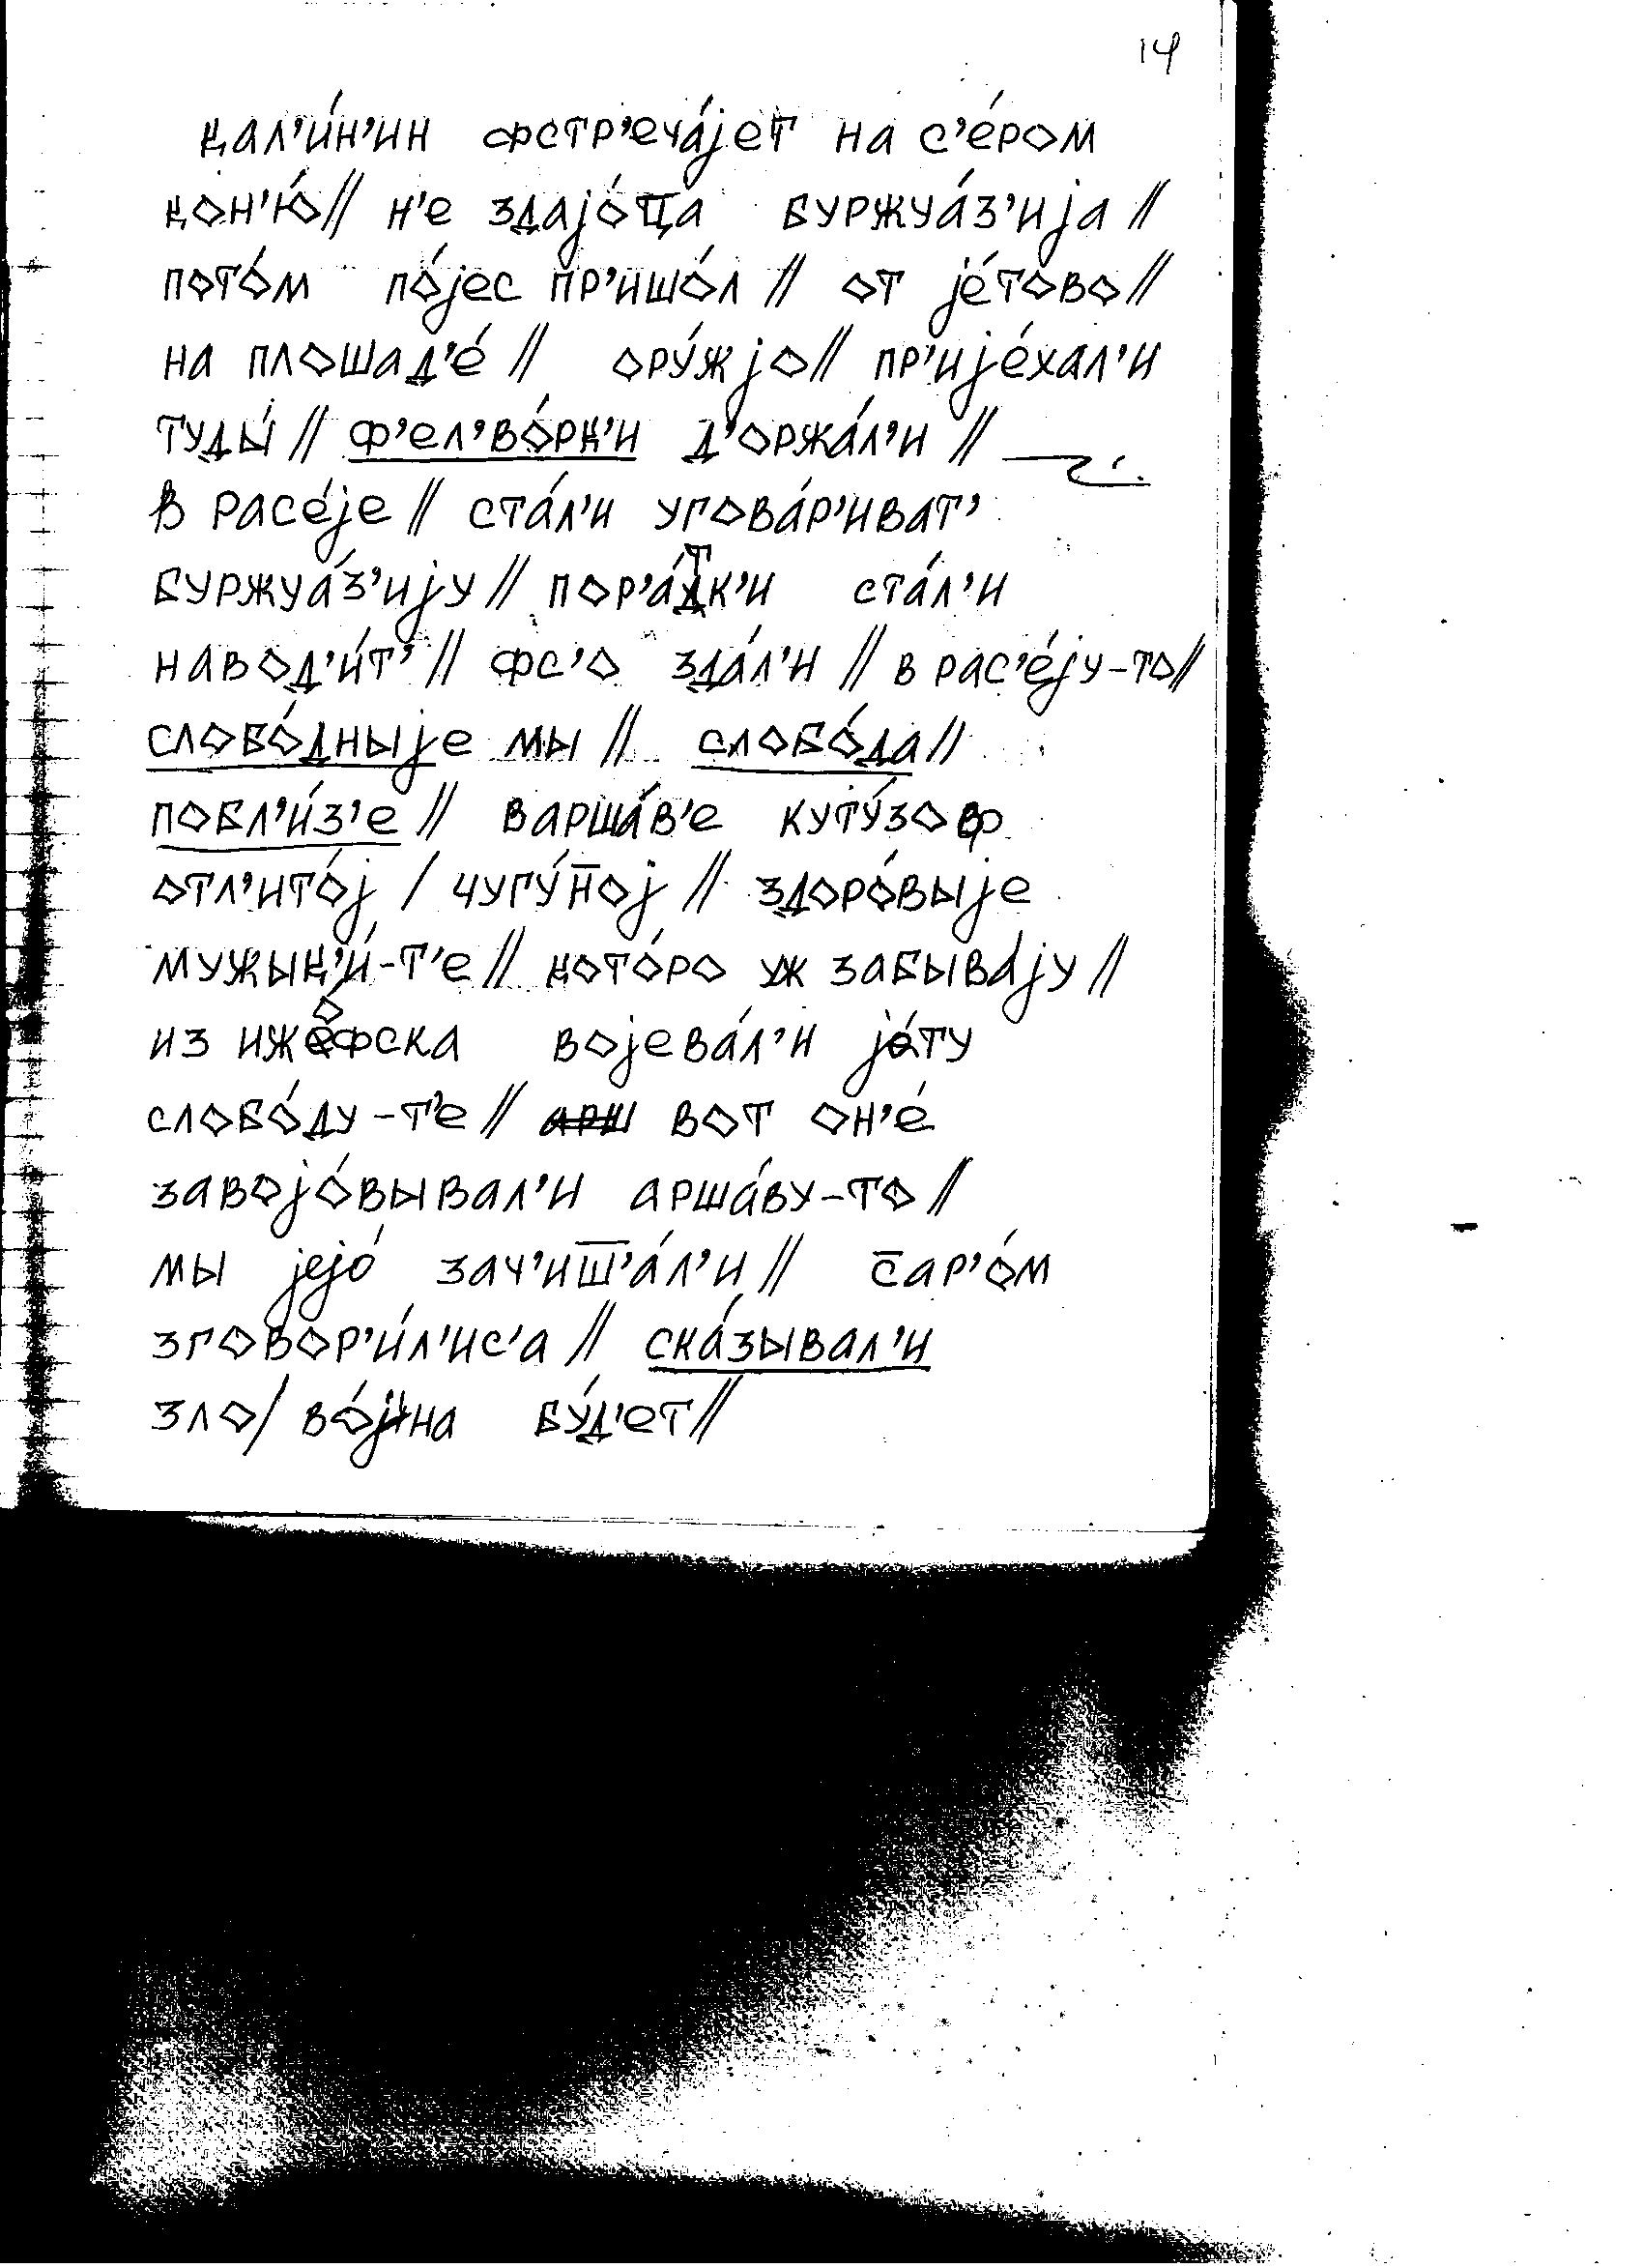 14
кал’и́н’ин фстр’еча́јет на с’е́ром
кон’ю́// н’е здајо́ц̅а буржуа́з’ија//
пото́м по́јес пр’ишо́л// от је́тово//
на плошад’е́// ору́жјо// пр’ије́хал’и
туды́// ф’ел’во́рк’и д’оржа́л’и//
в расе́је// ста́л’и угова́р’иват’
буржуа́з’ију// пор’а́тк’и ста́л’и
навод’и́т’// фс’о зда́л’и// в рас’е́ју-то//
слобо́дныје мы// слобо́да//
побл’и́з’е// варша́в’е куту́зоф
отл’ито́ј / чугу́н̅ој// здоро́выје
мужык’и́-т’е// кото́ро уж забыва́ју//
из ижо́фска војева́л’и је́ту
слобо́ду-т’е// вот он’е́
завојо́вывал’и арша́ву-то//
мы јејо́ зач’иш̅’а́л’и// с̅ар’о́м
зговор’и́л’ис’а// ска́зывал’и
зло/ во́јна бу́д’ет//